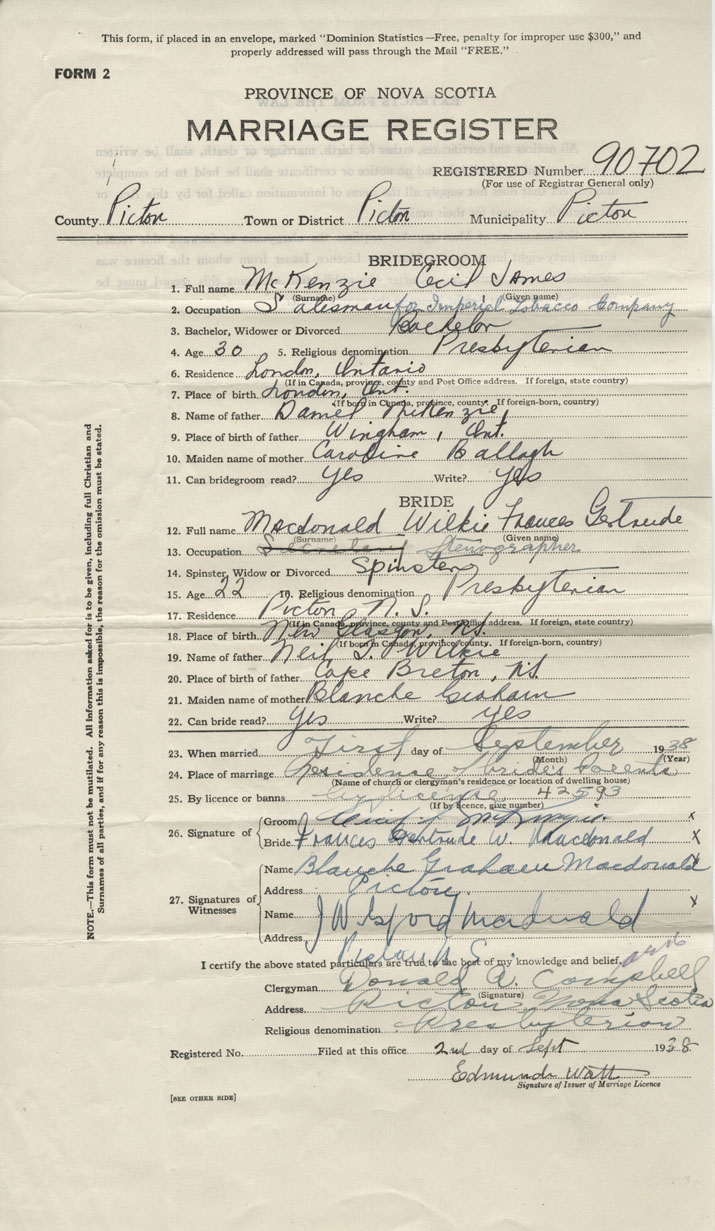 This form, if placed in an envelope, marked "Dominion Statistics—Free, penalty for improper use $300," and
properly addressed will pass through the Mail "FREE."
FORM 2
PROVINCE OF NOVA SCOTIA
MARRIAGE REGISTER
REGISTERED Number 90702
(For use of Registrar General only)
County Pictou Town or District Pictou Municipality Pictou
BRIDEGROOM
1. Full name McKenzie Cecil James
(Surname) (Given name)
2. Occupation Salesman for Imperial Tobacco Company
3. Bachelor, Widower or Divorced Bachelor
4. Age 30 5. Religious denomination Presbyterian
6. Residence London, Ontario
(If in Canada, province, county and Post Office address. If foreign, state country)
7. Place of birth London, Ont.
(If born in Canada, province, county. If foreign-born, country)
8. Name of father Daniel McKenzie
9. Place of birth of father Wingham, Ont.
10. Maiden name of mother Caroline Ballagh
11. Can bridegroom read? Yes Write? Yes
BRIDE
12. Full name Macdonald Wilkie Frances Gertrude
(Surname) (Given name)
13. Occupation Secretary Stenographer
14. Spinster, Widow or Divorced Spinster
15. Age 22 16. Religious denomination Presbyterian
17. Residence Pictou N.S.
(If in Canada, province, county and Post Office address. If foreign, state country)
18. Place of birth New Glasgow, N.S.
(If born in Canada, province, county. If foreign-born, country)
19. Name of father Neil S. Wilkie
20. Place of birth of father Cape Breton, N.S.
21. Maiden name of mother Blanche Graham
22. Can bride read? Yes Write? Yes
23. When married First day of September 1938
(Month) (Year)
24. Place of marriage Residence of bride's Parents
(Name of church or clergyman's residence or location of dwelling house)
25. By licence or banns by license 42593
(If by licence, give number)
26. Signature of Groom Cecil J McKenzie x
Bride Frances Gertrude W. Macdonald x
27. Signatures of Witnesses Name Blanche Graham Macdonald x
Address Pictou
Name J Welsford Macdonald x
Address Pictou N.S.
I certify the above stated particulars are true to the best of my knowledge and belief,
Clergyman Donald A. Campbell
(Signature)
Address Pictou, Nova Scotia
Religious denomination Presbyterian
Registered No. Filed at this office 2nd day of Sept 1938
Edmund Watt
Signature of Issuer of Marriage Licence
[SEE OTHER SIDE]
NOTE.—This form must not be mutilated. All information asked for is to be given, including full Christian and
Surnames of all parties, and if for any reason this is impossible, the reason for the omission must be stated.